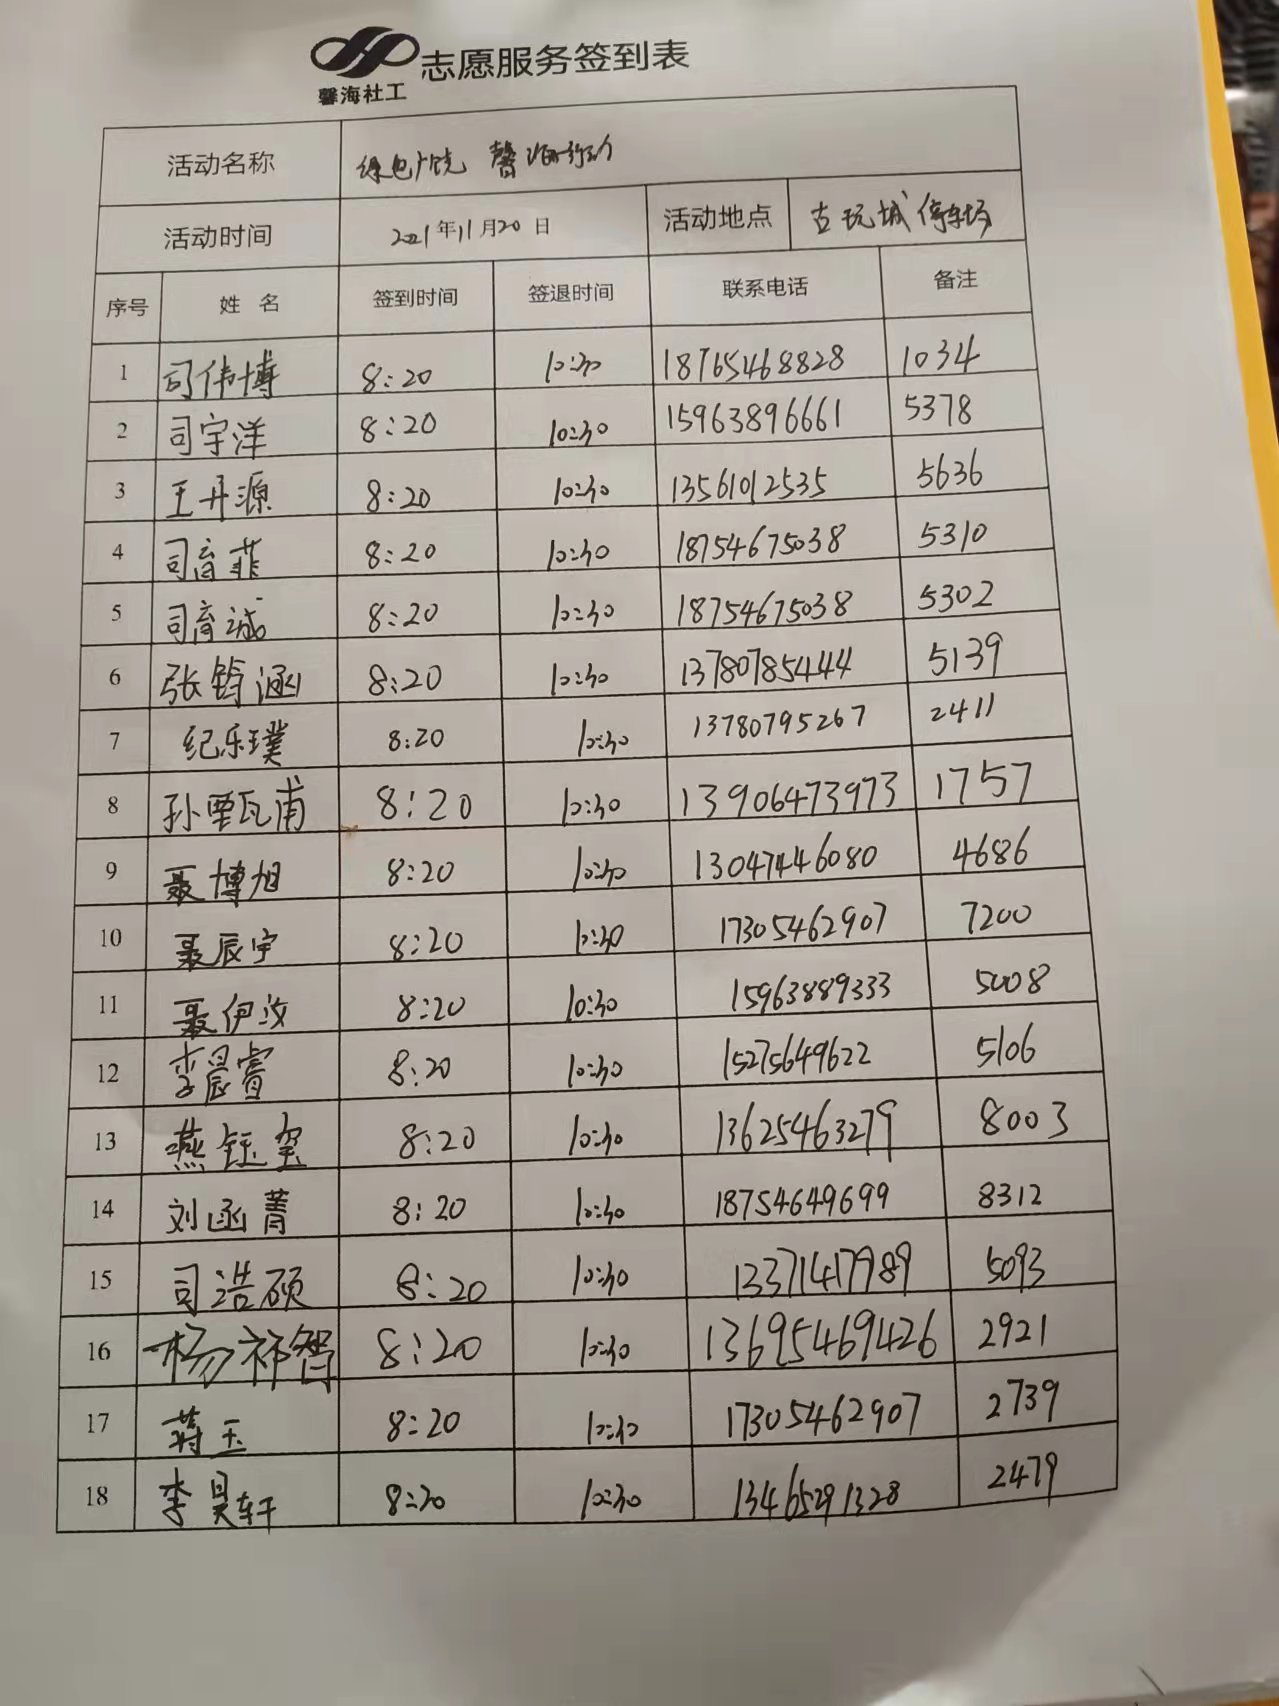 志愿服务签到表
馨海社工
活动名称 馨海行动
活动时间 2021年11月20日 活动地点 古玩城停车场
序号 姓名 签到时间 签退时间 联系电话 备注
1 司伟博 8:20 10:30 18765468828 1034
2 司宇洋 8:20 10:30 15963896661 5378
3 王丹源 8:20 10:30 13561012535 5636
4 司育菲 8:20 10:30 18754675038 5310
5 司育诚 8:20 10:30 18754675038 5302
6 张钧涵 8:20 10:30 13780785444 5139
7 纪乐璞 8:20 10:30 13780795267 2411
8 孙 甫 8:20 10:30 13906473973 1757
9 聂博旭 8:20 10:30 13047446080 4686
10 聂辰宇 8:20 10:30 17305462907 7200
11 聂伊汝 8:20 10:30 15963889333 5008
12 李晨睿 8:20 10:30 15275649622 5106
13 燕钰玺 8:20 10:30 13625463279 8003
14 刘函菁 8:20 10:30 18754649699 8312
15 司浩硕 8:20 10:30 13371417989 5093
16 杨祁智 8:20 10:30 13695469426 2921
17 蒋玉 8:20 10:30 17305462907 2739
18 李昊轩 8:20 10:30 13465291328 2479